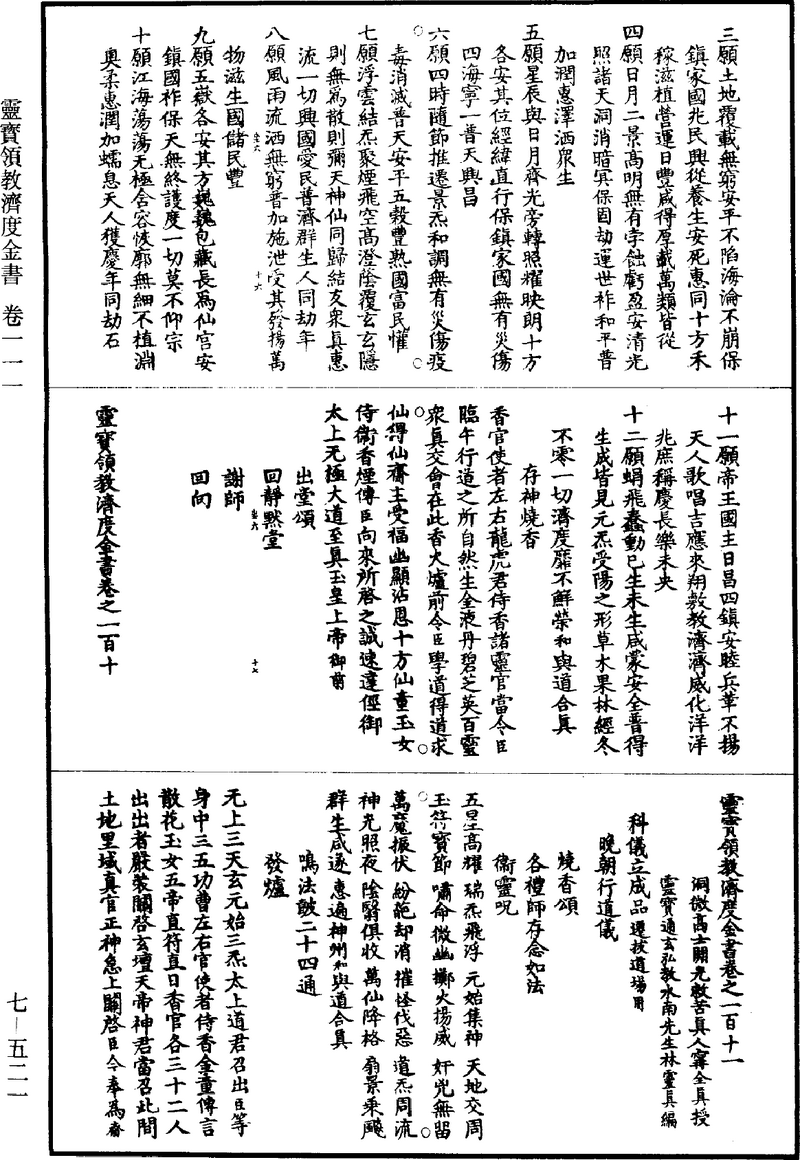 三願土地覆載無窮安平不陷海淪不崩保
鎮家國兆民興從養生安死惠同十方禾
稼滋植營運日豐咸得厚載萬類皆從
四願日月二景高明無有孛蝕虧盈安清光
照諸天洞消暗冥保固劫運世祚和平普
加潤惠澤洒眾生
五願星辰與日月齊光旁轉照耀映朗十方
各安其位經緯直行保鎮家國無有災傷
四海寧一普天興昌
六願四時隨節推遷景炁和調無有災傷疫
毒消滅普天安平五穀豐熟國富民懽
七願浮雲結炁聚煙飛空高澄蔭覆玄玄隱
則無為散則彌天神仙同歸結友眾真惠
流一切興國愛民普濟群生人同劫年
八願風雨流洒無窮普加施泄受其發揚萬
物滋生國儲民豐
九願五嶽各安其方巍巍包藏長為仙宮安
鎮國祚保天無終護度一切莫不仰宗
十願江海蕩蕩无極含容恢廓無細不植淵
奧柔惠潤加蠕息天人獲慶年同劫石
十一願帝王國主日昌四鎮安睦兵革不揚
天人歌唱吉應來翔敷教濟濟威化洋洋
兆庶稱慶長樂未央
十二願蜎飛蠢動已生未生咸蒙安全普得
生成皆見元炁受陽之形草木果林經冬
不零一切濟度靡不鮮榮和與道合真
存神燒香
香官使者左右龍虎君侍香諸靈官當令臣
臨午行道之所自然生金液丹碧芝英百靈
眾真交會在此香火爐前令臣學道得道求
仙得仙齋主受福幽顯沾恩十方仙童玉女
侍衛香煙傳臣向來所啓之誠速達徑御
太上无極大道至真玉皇上帝御前
出堂頌
回靜默堂
謝師
回向
靈寶領教濟度金書卷之一百十
靈寶領教濟度金書卷之一百十一
洞微高士開光救苦真人甯全真授
靈寶通玄弘教水南先生林靈真編
科儀立成品 遷拔道場用
晚朝行道儀
燒香頌
各禮師存念如法
衛靈呪
五星高耀 瑞炁飛浮 元始集神 天地交周
玉符寶節 嘯命微幽 擲火揚威 奸兇無留
萬魔振伏 紛葩却消 摧怪伐惡 道炁周流
神光照夜 陰翳俱收 萬仙降格 扇景乘飈
群生咸遂 惠遍神州 和與道合真
鳴法鼓二十四通
發爐
无上三天玄元始三炁太上道君召出臣等
身中三五功曹左右官使者侍香金童傳言
散花玉女五帝直符直日香官各三十二人
出出者嚴裝關啓玄壇天帝神君當召此間
土地里域真官正神急上關啓臣今奉為齋
靈寶領教濟度金書 卷一一一
七—五二一